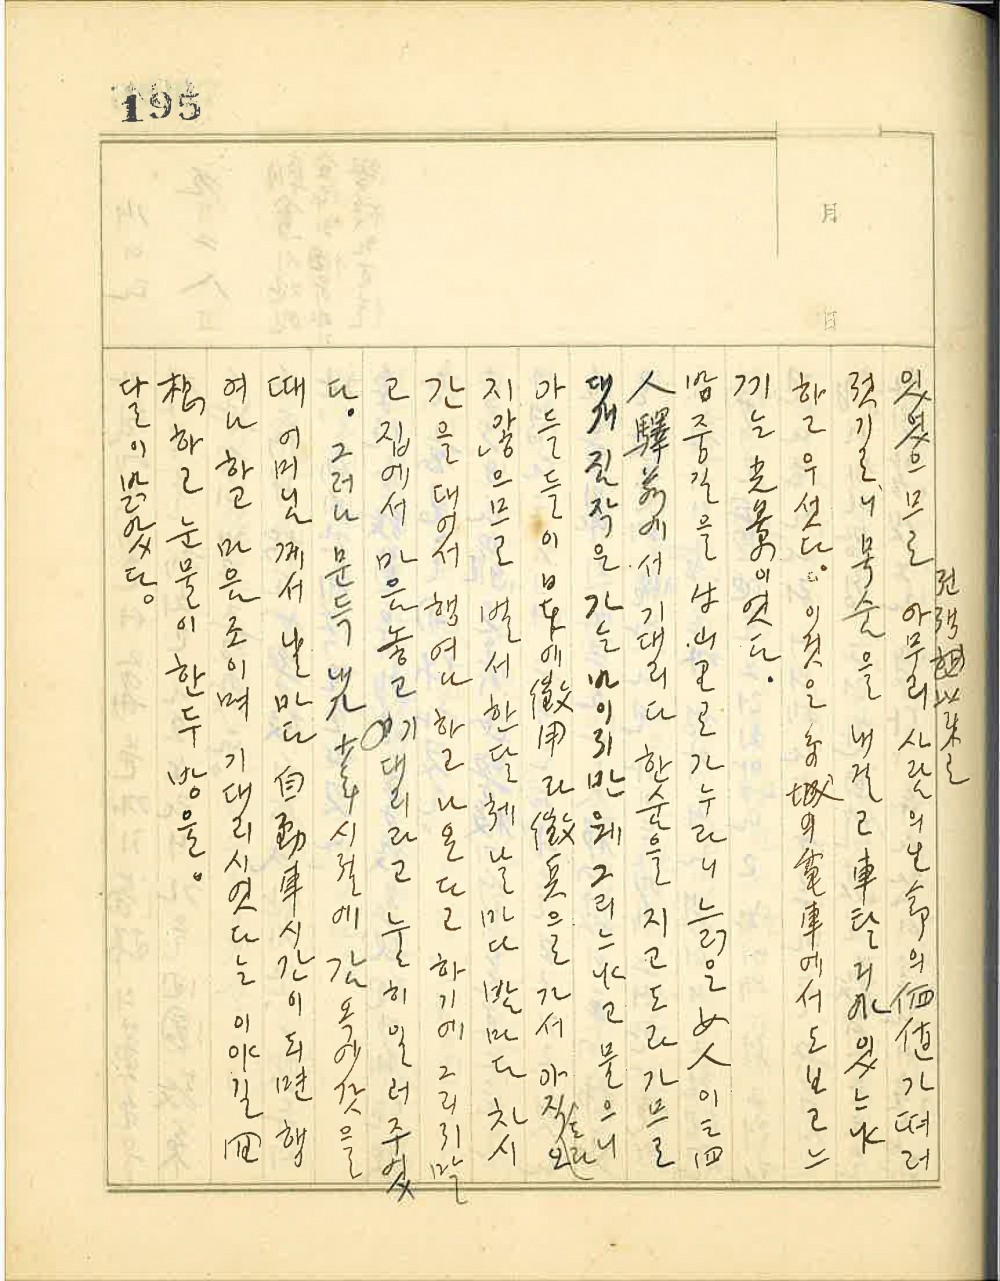 195
月
日
전쟁
있었으므로 아무리 사람의 生命의 価值가 떠러
젓기로니 목숨을 내걸고 車탈 거 있느냐
하고 우섯다. 이것은 京城의 電車에서도 보고 느
끼는 光景이엿다.
밤중길을 로 가누라니 늙은 女人이 三四
人 驛前에서 기대리다 한숨을 지고 도라가므로
대개 짐작은 가는 바이지만 웨 그리느냐고 물으니
아들들이 日本에 徵用라 徵兵으로 가서 아직 도라오
지 않으므로 벌서 한달 체 날마다 밤마다 차시
간을 대여서 행여나 하고 나온다고 하기에 그리지말
고 집에서 마음놓고 기대리라고 눌히 일러주엇
다. 그러나 문득 내가 시절에 감옥에 갓을
때 어머님께서 날마다 自動車시간이 되면 행
여나 하고 마음 조이며 기대리시엿다는 이야길 回
想하고 눈물이 한두 방울.
달이 밝앗다.